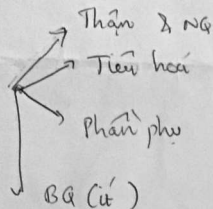 Thận & NQ
Tiêu hoá
Phần phụ
BQ (ít)